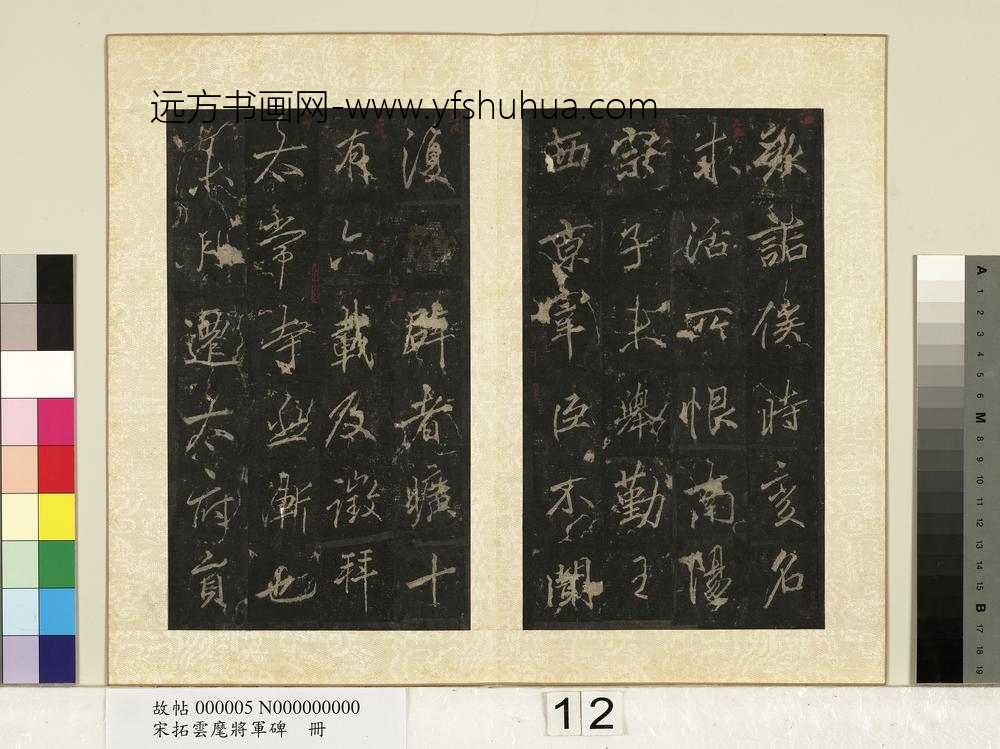 远方书画网-www.yfshuhua.com
詰侯時変名
求活所恨南陽
宗子未舉勤王
西京宰臣不聞
復辟者曠十
有六載及徵拜
太常寺丞漸也
月遷太府員
故帖 000005 N000000000
宋拓雲麾將軍碑 冊
12
A 1 2 3 4 5 6 M 8 9 10 11 12 13 14 15 B 17 18 19